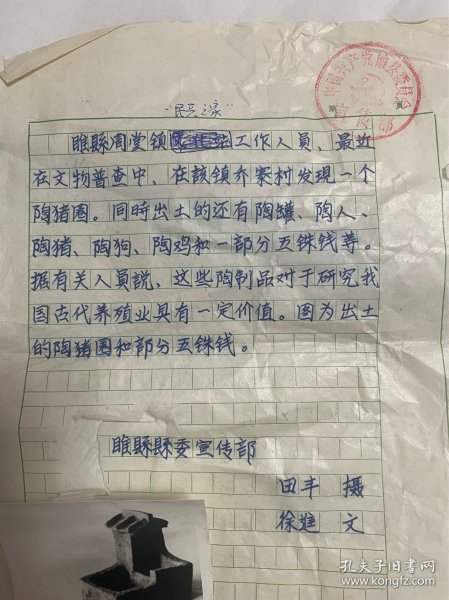 中国共产党睢县委员会
宣传部
第 页
睢縣周堂镇工作人员、最近
在文物普查中、在該镇乔寨村发现一个
陶猪圈。同時出土的还有陶罐、陶人、
陶猪、陶狗、陶鸡和一部分五铢钱等。
据有关人員説，这些陶制品对于研究我
国古代养殖业具有一定价值。图为出土
的陶猪圈和部分五铢钱。
睢縣縣委宣传部
田丰 摄
徐進 文
孔夫子旧书网
www.kongfz.com